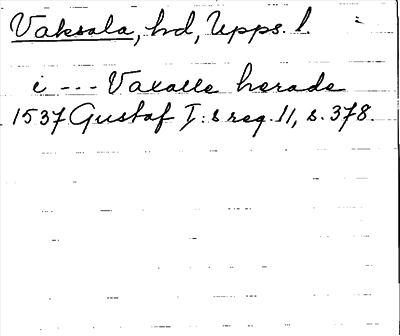 Vaksala, hd, Upps. l.
i --- Vaxalle herade
1537 Gustaf I:s reg. 11, s. 378.